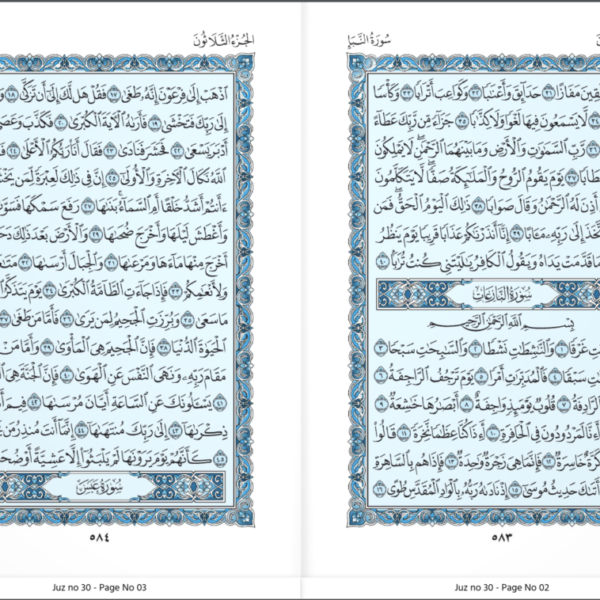 سُورَةُ النَّبَإِ
مَفَازًا ٣١ حَدَآئِقَ وَأَعْنَٰبًا ٣٢ وَكَوَاعِبَ أَتْرَابًا ٣٣ وَكَأْسًا
لَّا يَسْمَعُونَ فِيهَا لَغْوًا وَلَا كِذَّٰبًا ٣٥ جَزَآءً مِّن رَّبِّكَ عَطَآءً
رَّبِّ السَّمَٰوَٰتِ وَالْأَرْضِ وَمَا بَيْنَهُمَا الرَّحْمَٰنِ ۖ لَا يَمْلِكُونَ
يَوْمَ يَقُومُ الرُّوحُ وَالْمَلَٰٓئِكَةُ صَفًّا ۖ لَّا يَتَكَلَّمُونَ
أَذِنَ لَهُ الرَّحْمَٰنُ وَقَالَ صَوَابًا ٣٨ ذَٰلِكَ الْيَوْمُ الْحَقُّ ۖ فَمَن
إِلَىٰ رَبِّهِۦ مَـَٔابًا ٣٩ إِنَّآ أَنذَرْنَٰكُمْ عَذَابًا قَرِيبًا يَوْمَ يَنظُرُ
مَا قَدَّمَتْ يَدَاهُ وَيَقُولُ الْكَافِرُ يَٰلَيْتَنِي كُنتُ تُرَٰبًۢا ٤٠
سُورَةُ النَّازِعَاتِ
بِسْمِ اللَّهِ الرَّحْمَٰنِ الرَّحِيمِ
غَرْقًا ١ وَالنَّٰشِطَٰتِ نَشْطًا ٢ وَالسَّٰبِحَٰتِ سَبْحًا ٣
سَبْقًا ٤ فَالْمُدَبِّرَٰتِ أَمْرًا ٥ يَوْمَ تَرْجُفُ الرَّاجِفَةُ ٦
الرَّادِفَةُ ٧ قُلُوبٌ يَوْمَئِذٍ وَاجِفَةٌ ٨ أَبْصَٰرُهَا خَٰشِعَةٌ ٩
لَمَرْدُودُونَ فِي الْحَافِرَةِ ١٠ أَءِذَا كُنَّا عِظَٰمًا نَّخِرَةً ١١ قَالُوا
خَاسِرَةٌ ١٢ فَإِنَّمَا هِيَ زَجْرَةٌ وَٰحِدَةٌ ١٣ فَإِذَا هُم بِالسَّاهِرَةِ
حَدِيثُ مُوسَىٰٓ ١٥ إِذْ نَادَىٰهُ رَبُّهُۥ بِالْوَادِ الْمُقَدَّسِ طُوًى ١٦
٥٨٣
Juz no 30 - Page No 02
الجُزْءُ الثَّلَاثُونَ
اذْهَبْ إِلَىٰ فِرْعَوْنَ إِنَّهُۥ طَغَىٰ ١٧ فَقُلْ هَل لَّكَ إِلَىٰٓ أَن تَزَكَّىٰ ١٨
إِلَىٰ رَبِّكَ فَتَخْشَىٰ ١٩ فَأَرَىٰهُ الْأٓيَةَ الْكُبْرَىٰ ٢٠ فَكَذَّبَ وَعَصَىٰ
أَدْبَرَ يَسْعَىٰ ٢٢ فَحَشَرَ فَنَادَىٰ ٢٣ فَقَالَ أَنَا۠ رَبُّكُمُ الْأَعْلَىٰ ٢٤
اللَّهُ نَكَالَ الْأٓخِرَةِ وَالْأُولَىٰٓ ٢٥ إِنَّ فِي ذَٰلِكَ لَعِبْرَةً لِّمَن
ءَأَنتُمْ أَشَدُّ خَلْقًا أَمِ السَّمَآءُ ۚ بَنَىٰهَا ٢٧ رَفَعَ سَمْكَهَا
وَأَغْطَشَ لَيْلَهَا وَأَخْرَجَ ضُحَىٰهَا ٢٩ وَالْأَرْضَ بَعْدَ ذَٰلِكَ
أَخْرَجَ مِنْهَا مَآءَهَا وَمَرْعَىٰهَا ٣١ وَالْجِبَالَ أَرْسَىٰهَا ٣٢
وَلِأَنْعَٰمِكُمْ ٣٣ فَإِذَا جَآءَتِ الطَّآمَّةُ الْكُبْرَىٰ ٣٤ يَوْمَ
مَا سَعَىٰ ٣٥ وَبُرِّزَتِ الْجَحِيمُ لِمَن يَرَىٰ ٣٦ فَأَمَّا مَن طَغَىٰ
الْحَيَوٰةَ الدُّنْيَا ٣٨ فَإِنَّ الْجَحِيمَ هِيَ الْمَأْوَىٰ ٣٩ وَأَمَّا مَنْ
مَقَامَ رَبِّهِۦ وَنَهَى النَّفْسَ عَنِ الْهَوَىٰ ٤٠ فَإِنَّ الْجَنَّةَ هِيَ
يَسْـَٔلُونَكَ عَنِ السَّاعَةِ أَيَّانَ مُرْسَىٰهَا ٤٢ فِيمَ
ذِكْرَىٰهَآ ٤٣ إِلَىٰ رَبِّكَ مُنتَهَىٰهَآ ٤٤ إِنَّمَآ أَنتَ مُنذِرُ مَن
٤٥ كَأَنَّهُمْ يَوْمَ يَرَوْنَهَا لَمْ يَلْبَثُوٓا إِلَّا عَشِيَّةً أَوْ
سُورَةُ عَبَسَ
٥٨٤
Juz no 30 - Page No 03